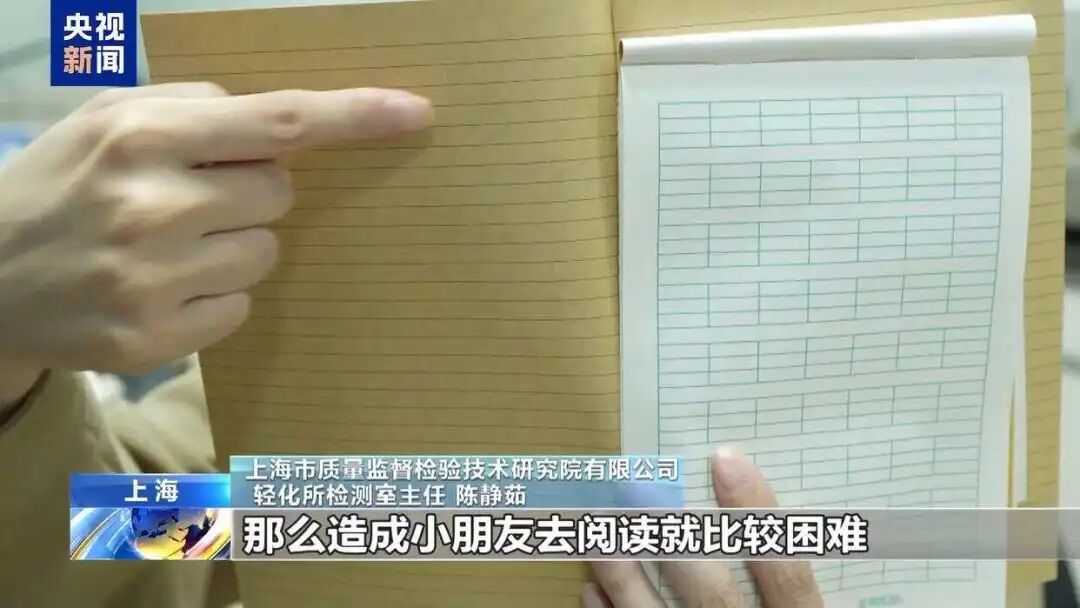 央视
新闻
上海市质量监督检验技术研究院有限公司
轻化所检测室主任 陈静茹
上海
那么造成小朋友去阅读就比较困难